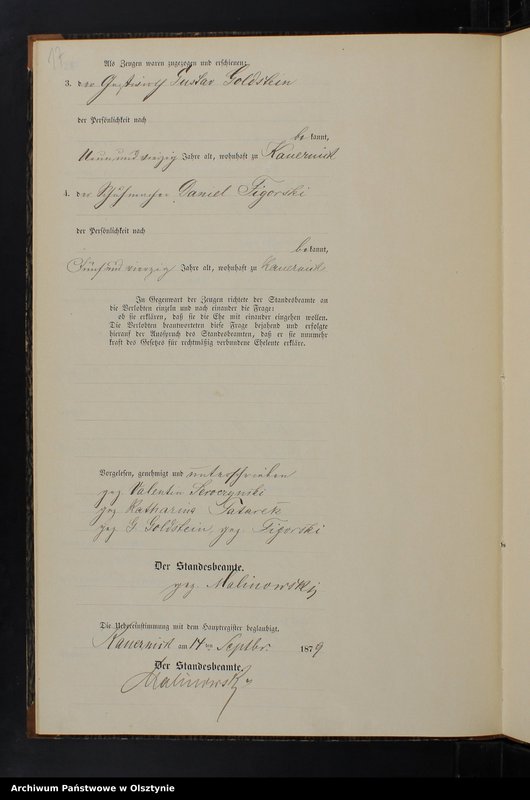 17
Als Zeugen waren zugezogen und erschienen:
3. der Gastwirth Gustav Goldstein
der Persönlichkeit nach
bekannt,
Neun und vierzig Jahre alt, wohnhaft zu Kauernick
4. der Schuhmacher Daniel Figorski
der Persönlichkeit nach
bekannt,
Fünf und vierzig Jahre alt, wohnhaft zu Kauernick
In Gegenwart der Zeugen richtete der Standesbeamte an
die Verlobten einzeln und nach einander die Frage:
ob sie erklären, daß sie die Ehe mit einander eingehen wollen.
Die Verlobten beantworteten diese Frage bejahend und erfolgte
hierauf der Ausspruch des Standesbeamten, daß er sie nunmehr
kraft des Gesetzes für rechtmäßig verbundene Eheleute erkläre.
Vorgelesen, genehmigt und unterschrieben
gez. Valentin
gez. Katharina Tatarek
gez. G. Goldstein gez. Figorski
Der Standesbeamte.
gez. Malinowski
Die Uebereinstimmung mit dem Hauptregister beglaubigt.
Kauernick am 14ten Septbr. 1879
Der Standesbeamte.
Malinowski
Archiwum Państwowe w Olsztynie